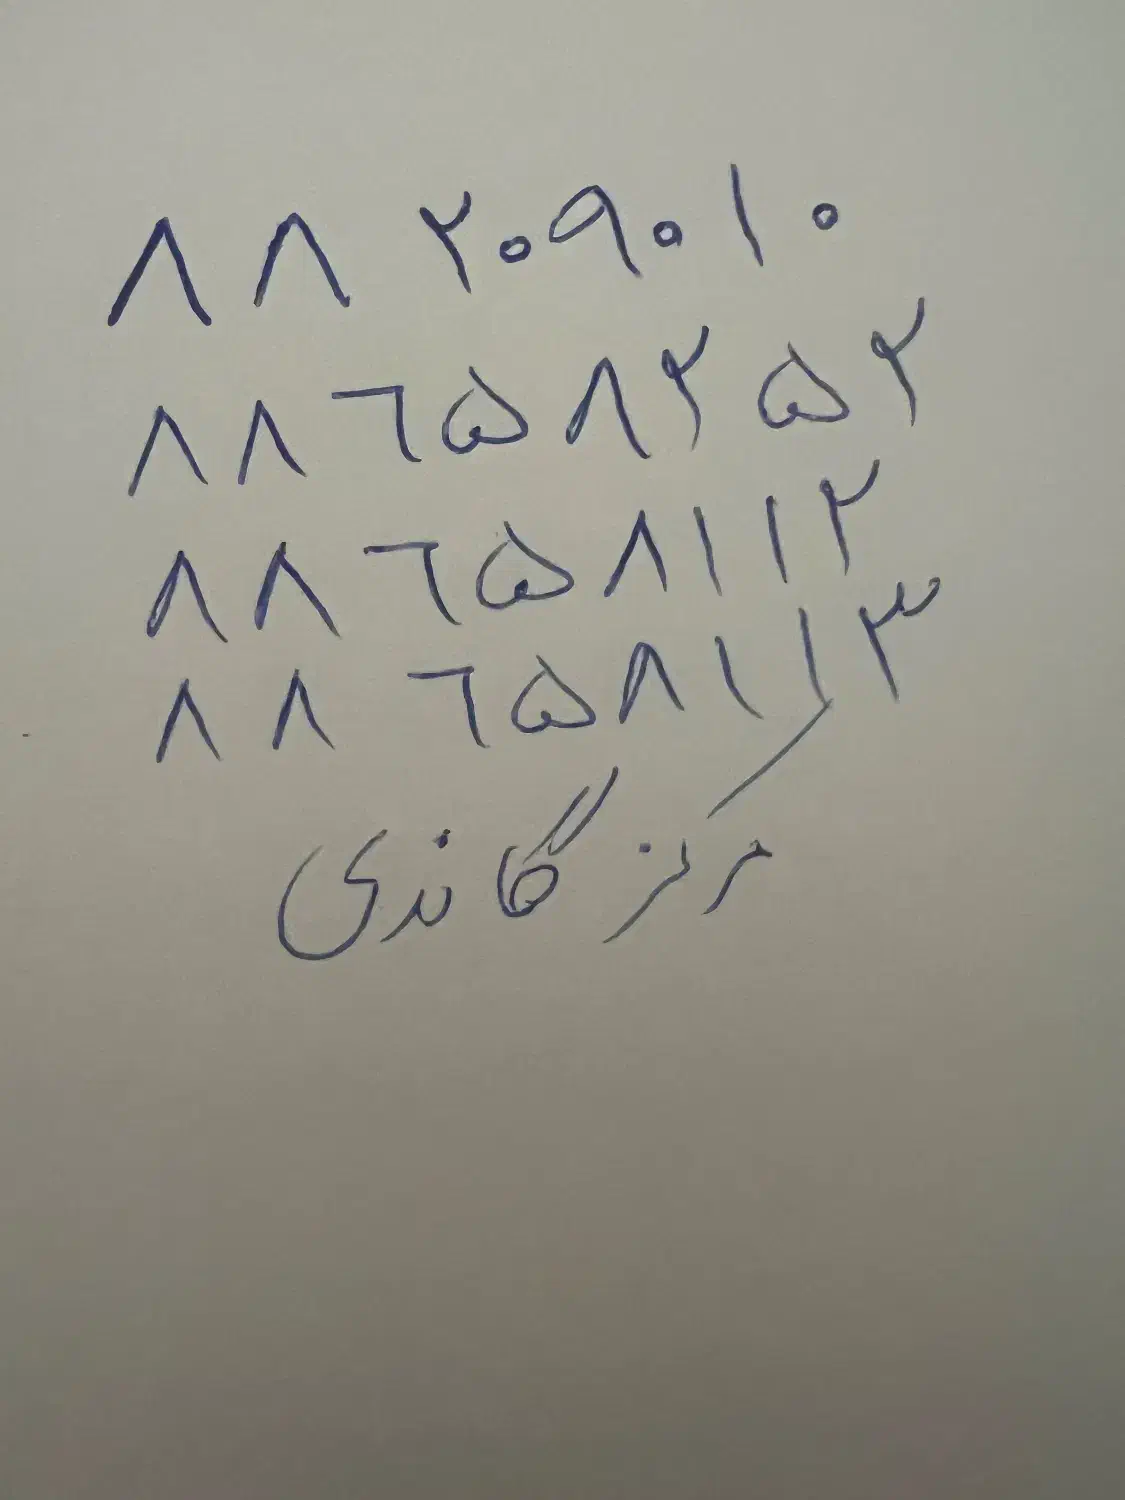 ۸۸۲۰۹۰۱۰
۸۸۶۵۸۲۵۲
۸۸۶۵۸۱۱۲
۸۸۶۵۸۱۱۳
مرکز گاندی